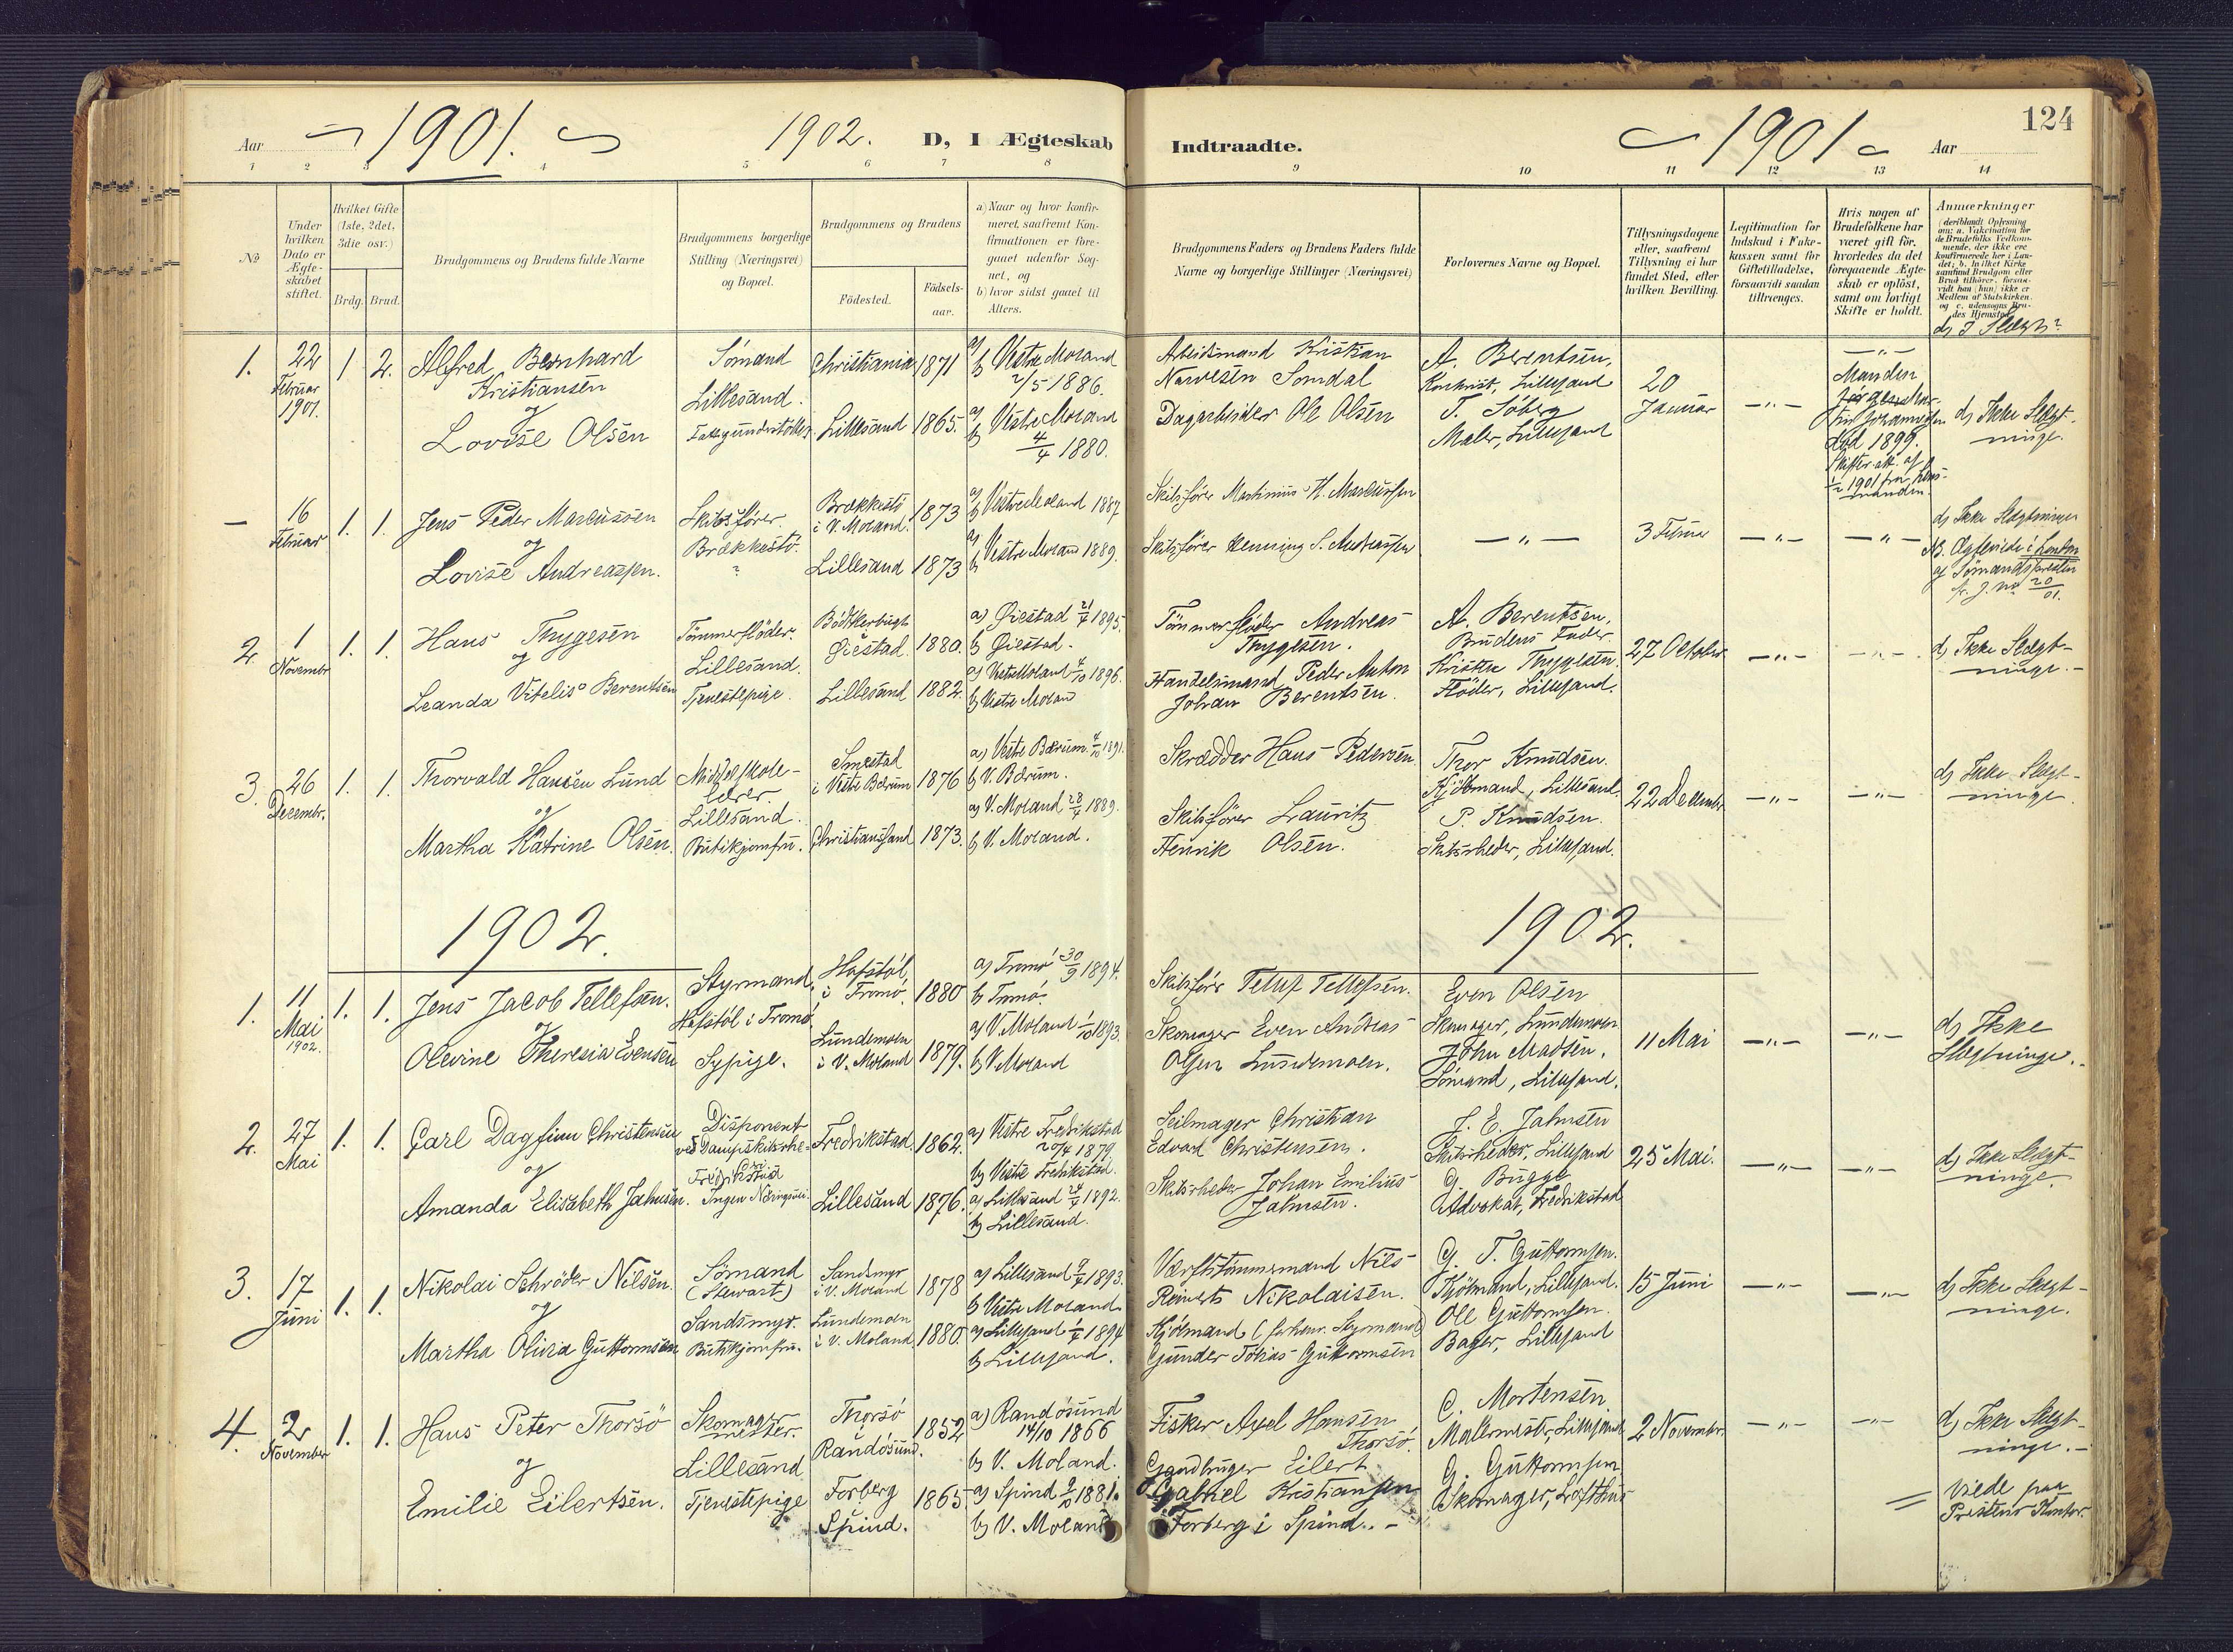 124
Aar 1901. 1902. D, I Ægteskab Indtraadte. 1901 Aar
1 2 3 4 5 6 7 8 9 10 11 12 13 14
No
Under hvilken Dato er Ægteskabet stiftet.
Hvilket Gifte (1ste, 2det, 3die osv.)
Brdg. Brud.
Brudgommens og Brudens fulde Navne
Brudgommens borgerlige
Stilling (Næringsvei)
og Bopæl.
Brudgommens og Brudens
Fødested.
Fødsels-
aar.
a) Naar og hvor konfir-
meret, saafremt Kon-
firmationen er fore-
gaaet udenfor Sog-
net, og
b) hvor sidst gaaet til
Alters.
Brudgommens Faders og Brudens Faders fulde
Navne og borgerlige Stillinger (Næringsvei)
Forlovernes Navne og Bopæl.
Tillysningsdagene
eller, saafremt
Tillysning ei har
fundet Sted, efter
hvilken Bevilling.
Legitimation for
Indskud i Enke-
kassen samt for
Giftetilladelse,
forsaavidt saadan
tiltrænges.
Hvis nogen af
Brudefolkene har
været gift før,
hvorledes da det
foregaaende Ægte-
skab er opløst,
samt om lovligt
Skifte er holdt.
Anmærkninger
1.
22
Februar
1901.
1 2.
Alfred Bernhard
Kristiansen
og
Lovise Olsen
Sömand
Lillesand.
Christiania
Lillesand
1871
1865.
a)
b) Vestre Moland
2/5 1886.
a)
b) Vestre Moland
4/4 1880.
Arbeidsmand Kristian
Narvesen Somdal
Dagarbeider Ole Olsen
A. Berentsen,
Lillesand
T. Söberg
Maler, Lillesand
20
Januar
— " —
— " —
Manden
død 1899.
d) Ikke Slægt-
ninge.
—
16
Februar
1. 1.
Jens Peder Marcussen
og
Lovise Andreassen.
Skibsfører.
Brækkestö.
Brækkestö
i V. Moland.
Lillesand
1873
1873
a)
b) Vestre Moland 1887
a)
b) Vestre Moland 1889.
Skibsfører Martinius H. Marcussen
Skibsfører Henning S. Andreassen
— " —
3 Februar
— " —
— " —
d) Ikke Slægtninge
NB. Ægteviede i London
af Sömandspresten
2.
1
Novembr
1. 1.
Hans Thygesen
og
Leanda Vitelis Berentsen
Tømmerflöder.
Lillesand.
Tjenestepige.
Øiestad.
Lillesand
1880.
1882.
a) Øiestad 21/4 1895.
b) Øiestad.
a) Vestre Moland 4/10 1896.
b) Vestre Moland
Tømmerflöder Andreas
Thygesen.
Handelsmand Peder Anton
Johan Berentsen.
A. Berentsen,
Brudens Fader
Kristen Thygesen
Flöder, Lillesand.
27 October
— " —
— " —
d) Ikke Slægt-
ninge.
3.
26
Decembr.
1. 1.
Thorvald Hansen Lund
og
Martha Katrine Olsen.
Middelskole-
lærer.
Lillesand.
Butikjomfru.
Smestad
i Vestre Bærum
Christianssand
1876
1873.
a) Vestre Bærum 4/10 1891.
b) V. Bærum.
a) V. Moland 28/4 1889.
b) V. Moland.
Skrædder Hans Pedersen
Skibsfører Lauritz
Henrik Olsen.
Thor Knudsen.
Kjöbmand, Lillesand.
P. Knudsen.
Skibsrheder, Lillesand.
22 December
— " —
— " —
d) Ikke Slægt-
ninge.
1902. 1902.
1.
11
Mai
1902.
1. 1.
Jens Jacob Tellefsen.
og
Olevine Theresia Evensen
Styrmand,
Hofstöl i Tromö
Sypige.
Hofstöl,
i Tromö.
Lundemoen
i V. Moland
1880
1879.
a) Tromö 30/9 1894.
b) Tromö.
a) V. Moland 1/10 1893.
b) V. Moland
Skibsförer Tellef Tellefsen.
Skomager Even Andreas
Olsen Lundemoen.
Even Olsen
Skomager, Lundemoen
John Madsen.
Sömand, Lillesand.
11 Mai
— " —
— " —
d) Ikke
Slægtninge.
2.
27
Mai
1. 1.
Carl Dagfinn Christensen
og
Amanda Elisabeth Jahnsen.
Disponent
ved Dampskibsrhe-
deri
Fredrikstad
Ingen Næringsvei.
Fredrikstad
Lillesand
1862.
1876.
a) Vestre Fredrikstad
20/4 1879.
b) Vestre Fredrikstad.
a) Lillesand 24/4 1892.
b) Lillesand.
Seilmager Christian
Edvard Christensen.
Skibsrheder Johan Emilius
Jahnsen.
J. E. Jahnsen
Skibsrheder, Lillesand
G. Bugge
Advokat, Fredrikstad
25 Mai.
— " —
— " —
d) Ikke Slægt-
ninge.
3.
17
Juni
1. 1.
Nikolai Schröder Nilsen.
og
Martha Olivia Guttormsen
Sömand
(Stewart)
Sandsmyr.
Butikjomfru.
Sandsmyr
i V. Moland
Lundemoen
i V. Moland.
1878
1880.
a) Lillesand 9/4 1893.
b) Vestre Moland.
a) Lillesand 1/4 1894
b) Lillesand.
Værftstømmermand Nils
Reinerts Nikolaisen.
Kjöbmand (forhenv. Styrmand)
Gunder Tobias Guttormsen
G. T. Guttormsen.
Kjöbmand, Lillesand.
Ole Guttormsen.
Bager, Lillesand
15 Juni
— " —
— " —
d) Ikke Slægt-
ninge.
4.
2
November
1. 1.
Hans Peter Thorsö
og
Emilie Eilertsen.
Skomager
mester.
Lillesand
Tjenestepige
Thorsö
Randösund.
Forberg
Spind.
1852
1865
a) Randösund
14/10 1866
b) V. Moland.
a) Spind 9/10 1881.
b) V. Moland
Fisker Axel Hansen
Thorsö.
Gaardbruger Eilert
Gabriel Kristiansen
Forberg i Spind. -
C. Mortensen
Malermester, Lillesand
G. Guttormsen
Skomager, Lofthus
2 November
— " —
— " —
d) Ikke Slægt-
ninge. -
Viede paa
Prestens Kontor.